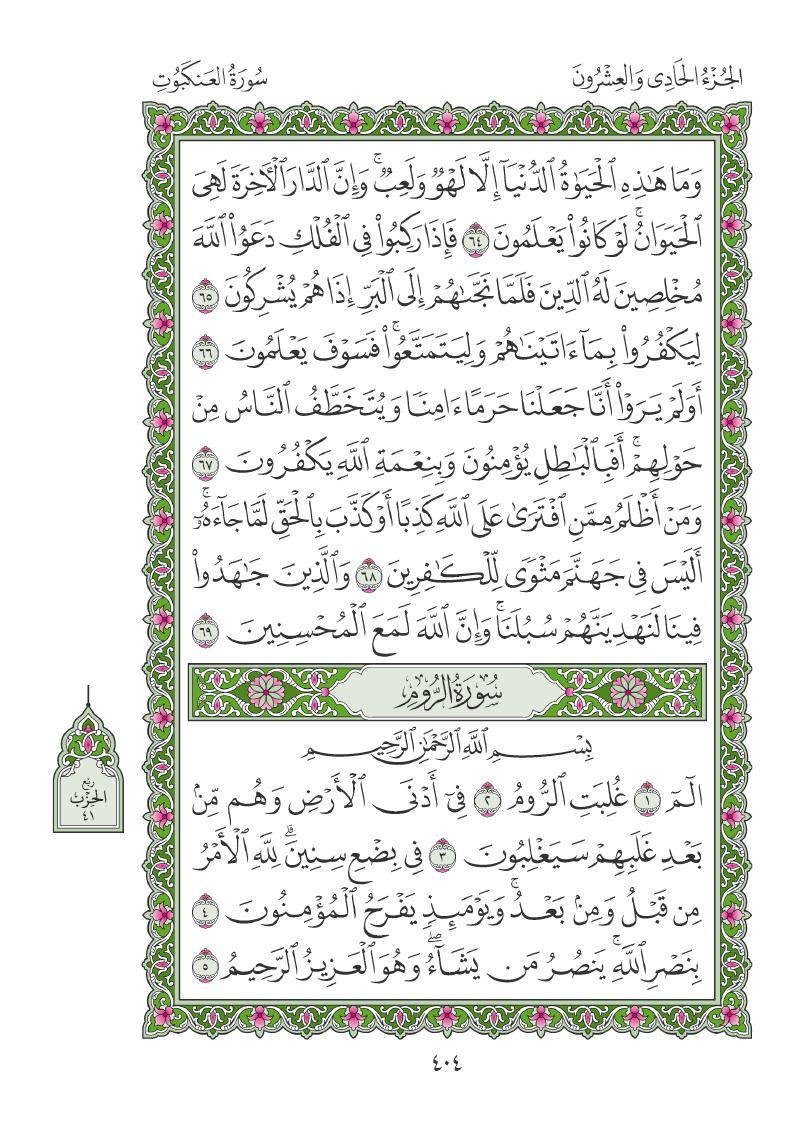 الجُزْءُ الحَادِى وَالعِشْرُونَ
سُورَةُ العَنكَبُوتِ
وَمَا هَٰذِهِ ٱلْحَيَوٰةُ ٱلدُّنْيَآ إِلَّا لَهْوٌ وَلَعِبٌ ۚ وَإِنَّ ٱلدَّارَ ٱلْءَاخِرَةَ لَهِىَ
ٱلْحَيَوَانُ ۚ لَوْ كَانُوا۟ يَعْلَمُونَ ٦٤ فَإِذَا رَكِبُوا۟ فِى ٱلْفُلْكِ دَعَوُا۟ ٱللَّهَ
مُخْلِصِينَ لَهُ ٱلدِّينَ فَلَمَّا نَجَّىٰهُمْ إِلَى ٱلْبَرِّ إِذَا هُمْ يُشْرِكُونَ ٦٥
لِيَكْفُرُوا۟ بِمَآ ءَاتَيْنَٰهُمْ وَلِيَتَمَتَّعُوا۟ ۚ فَسَوْفَ يَعْلَمُونَ ٦٦
أَوَلَمْ يَرَوْا۟ أَنَّا جَعَلْنَا حَرَمًا ءَامِنًا وَيُتَخَطَّفُ ٱلنَّاسُ مِنْ
حَوْلِهِمْ ۚ أَفَبِٱلْبَٰطِلِ يُؤْمِنُونَ وَبِنِعْمَةِ ٱللَّهِ يَكْفُرُونَ ٦٧
وَمَنْ أَظْلَمُ مِمَّنِ ٱفْتَرَىٰ عَلَى ٱللَّهِ كَذِبًا أَوْ كَذَّبَ بِٱلْحَقِّ لَمَّا جَآءَهُۥٓ ۚ
أَلَيْسَ فِى جَهَنَّمَ مَثْوًى لِّلْكَٰفِرِينَ ٦٨ وَٱلَّذِينَ جَٰهَدُوا۟
فِينَا لَنَهْدِيَنَّهُمْ سُبُلَنَا ۚ وَإِنَّ ٱللَّهَ لَمَعَ ٱلْمُحْسِنِينَ ٦٩
سُورَةُ الرُّومِ
بِسْمِ ٱللَّهِ ٱلرَّحْمَٰنِ ٱلرَّحِيمِ
الٓمٓ ١ غُلِبَتِ ٱلرُّومُ ٢ فِىٓ أَدْنَى ٱلْأَرْضِ وَهُم مِّنۢ
بَعْدِ غَلَبِهِمْ سَيَغْلِبُونَ ٣ فِى بِضْعِ سِنِينَ ۗ لِلَّهِ ٱلْأَمْرُ
مِن قَبْلُ وَمِنۢ بَعْدُ ۚ وَيَوْمَئِذٍ يَفْرَحُ ٱلْمُؤْمِنُونَ ٤
بِنَصْرِ ٱللَّهِ ۚ يَنصُرُ مَن يَشَآءُ ۖ وَهُوَ ٱلْعَزِيزُ ٱلرَّحِيمُ ٥
رُبْع
الحِزْب
٤١
٤٠٤